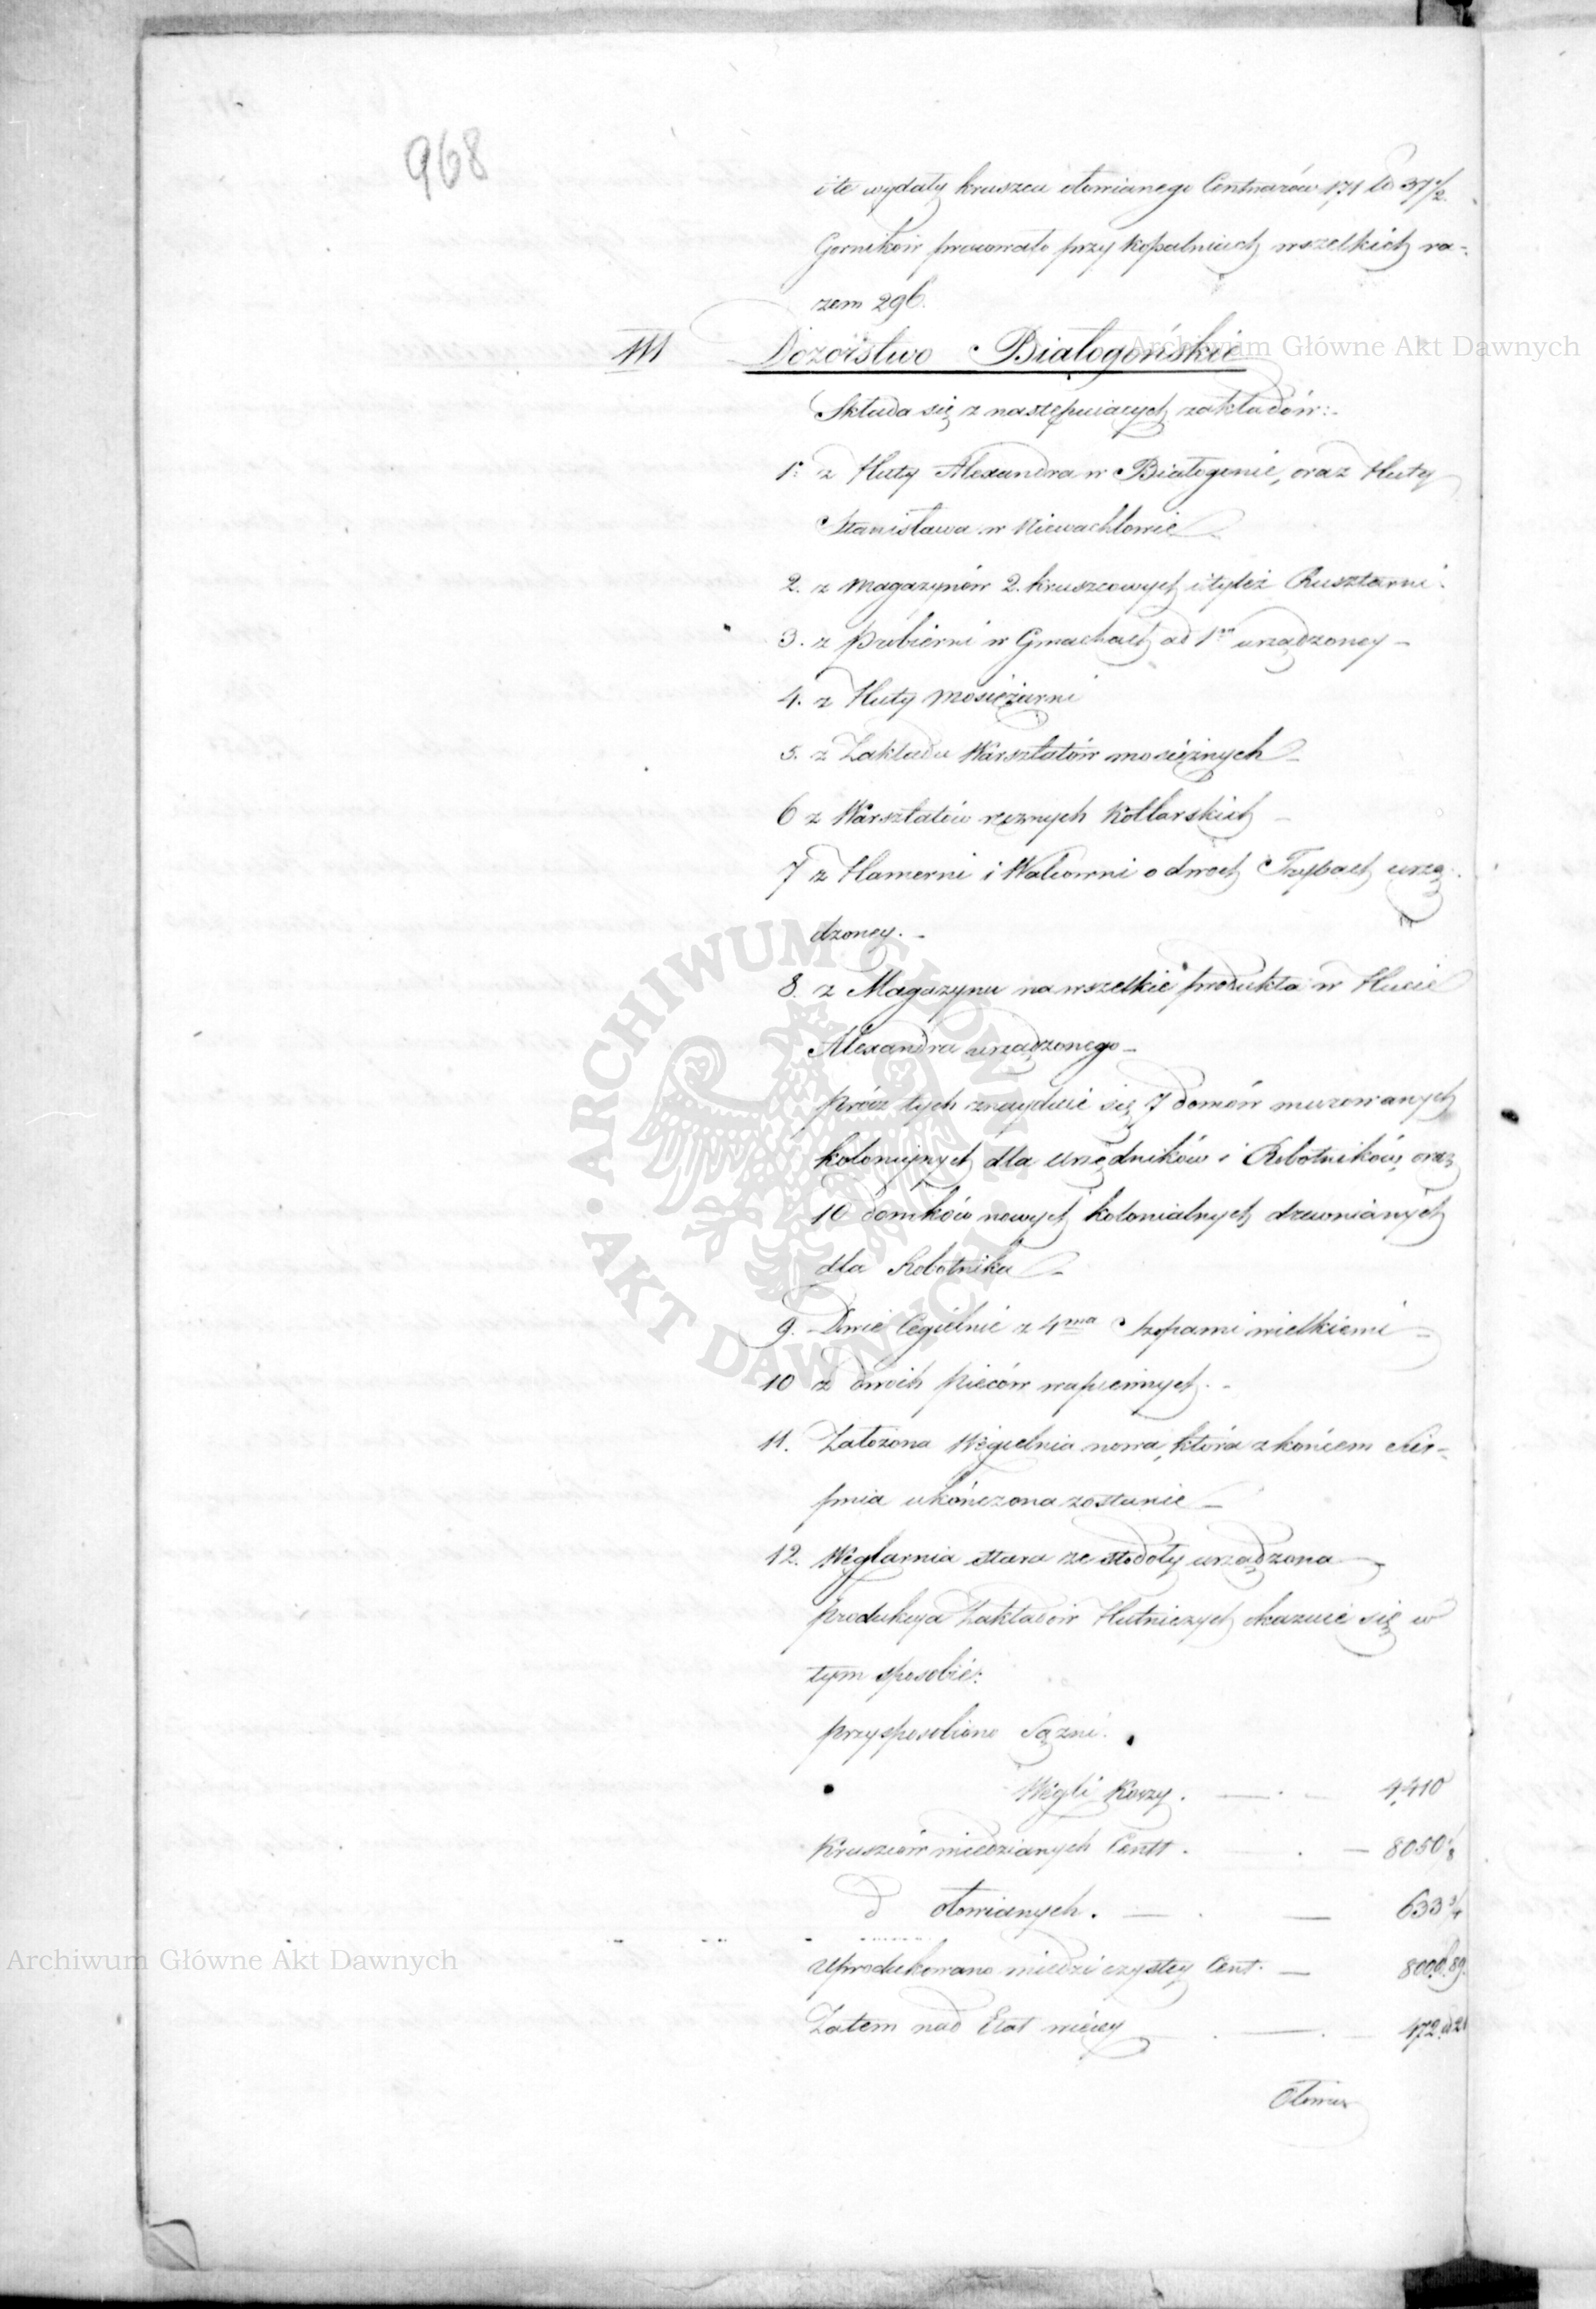 968
i te wydały kruszcu ołowianego Centnarów 171 ℔ 37 1/2.
Gornikow pracowało przy kopalniach wszelkich ra-
zem 296.
III Dozorstwo Białogońskie
Archiwum Główne Akt Dawnych
Składa się z następuiących zakładów:-
1: z Huty Alexandra w Białogonie, oraz Huty
Stanisława w Niewachlowie
2. z Magazynów 2. kruszcowych i tyleż Rusztarni.
3. z Probierni w Gmachach ad 1mo urządzoney -
4. z Huty Mosiężarni
5. z Zakładu Warsztatów mosiężnych
6 z Warsztatów ręcznych Kotlarskich
7 z Hamerni i Walcowni o dwoch Trybach urzą-
dzoney. -
8. z Magazynu na wszelkie produkta w Hucie
Alexandra urządzonego -
prócz tych znayduie się 7 domów murowanych
kolonijnych dla Urzędników i Robotników, oraz
10 domków nowych kolonialnych drewnianych
dla Robotnika
ARCHIWUM GŁÓWNE AKT DAWNYCH
9. Dwie Cegielnie z 4ma Szopami wielkiemi
10 z dwóch pieców wapiennych. -
11. Założona Węgielnia nowa, która z końcem Sier-
pnia ukończona zostanie
12. Węglarnia stara ze stodoły urządzona
produkcya Zakładów Hutniczych okazuie się w
tym sposobie:
przysposobiono Sążni.
Węgli Koszy. 4,410
Kruszców miedzianych Centt. 8050 1/8
d ołowianych. 633 3/4
Archiwum Główne Akt Dawnych
Uprodukowano miedzi czystey Cent. 800.℔ 89.
Zatem nad Etat więcey 172.
Ołowiu